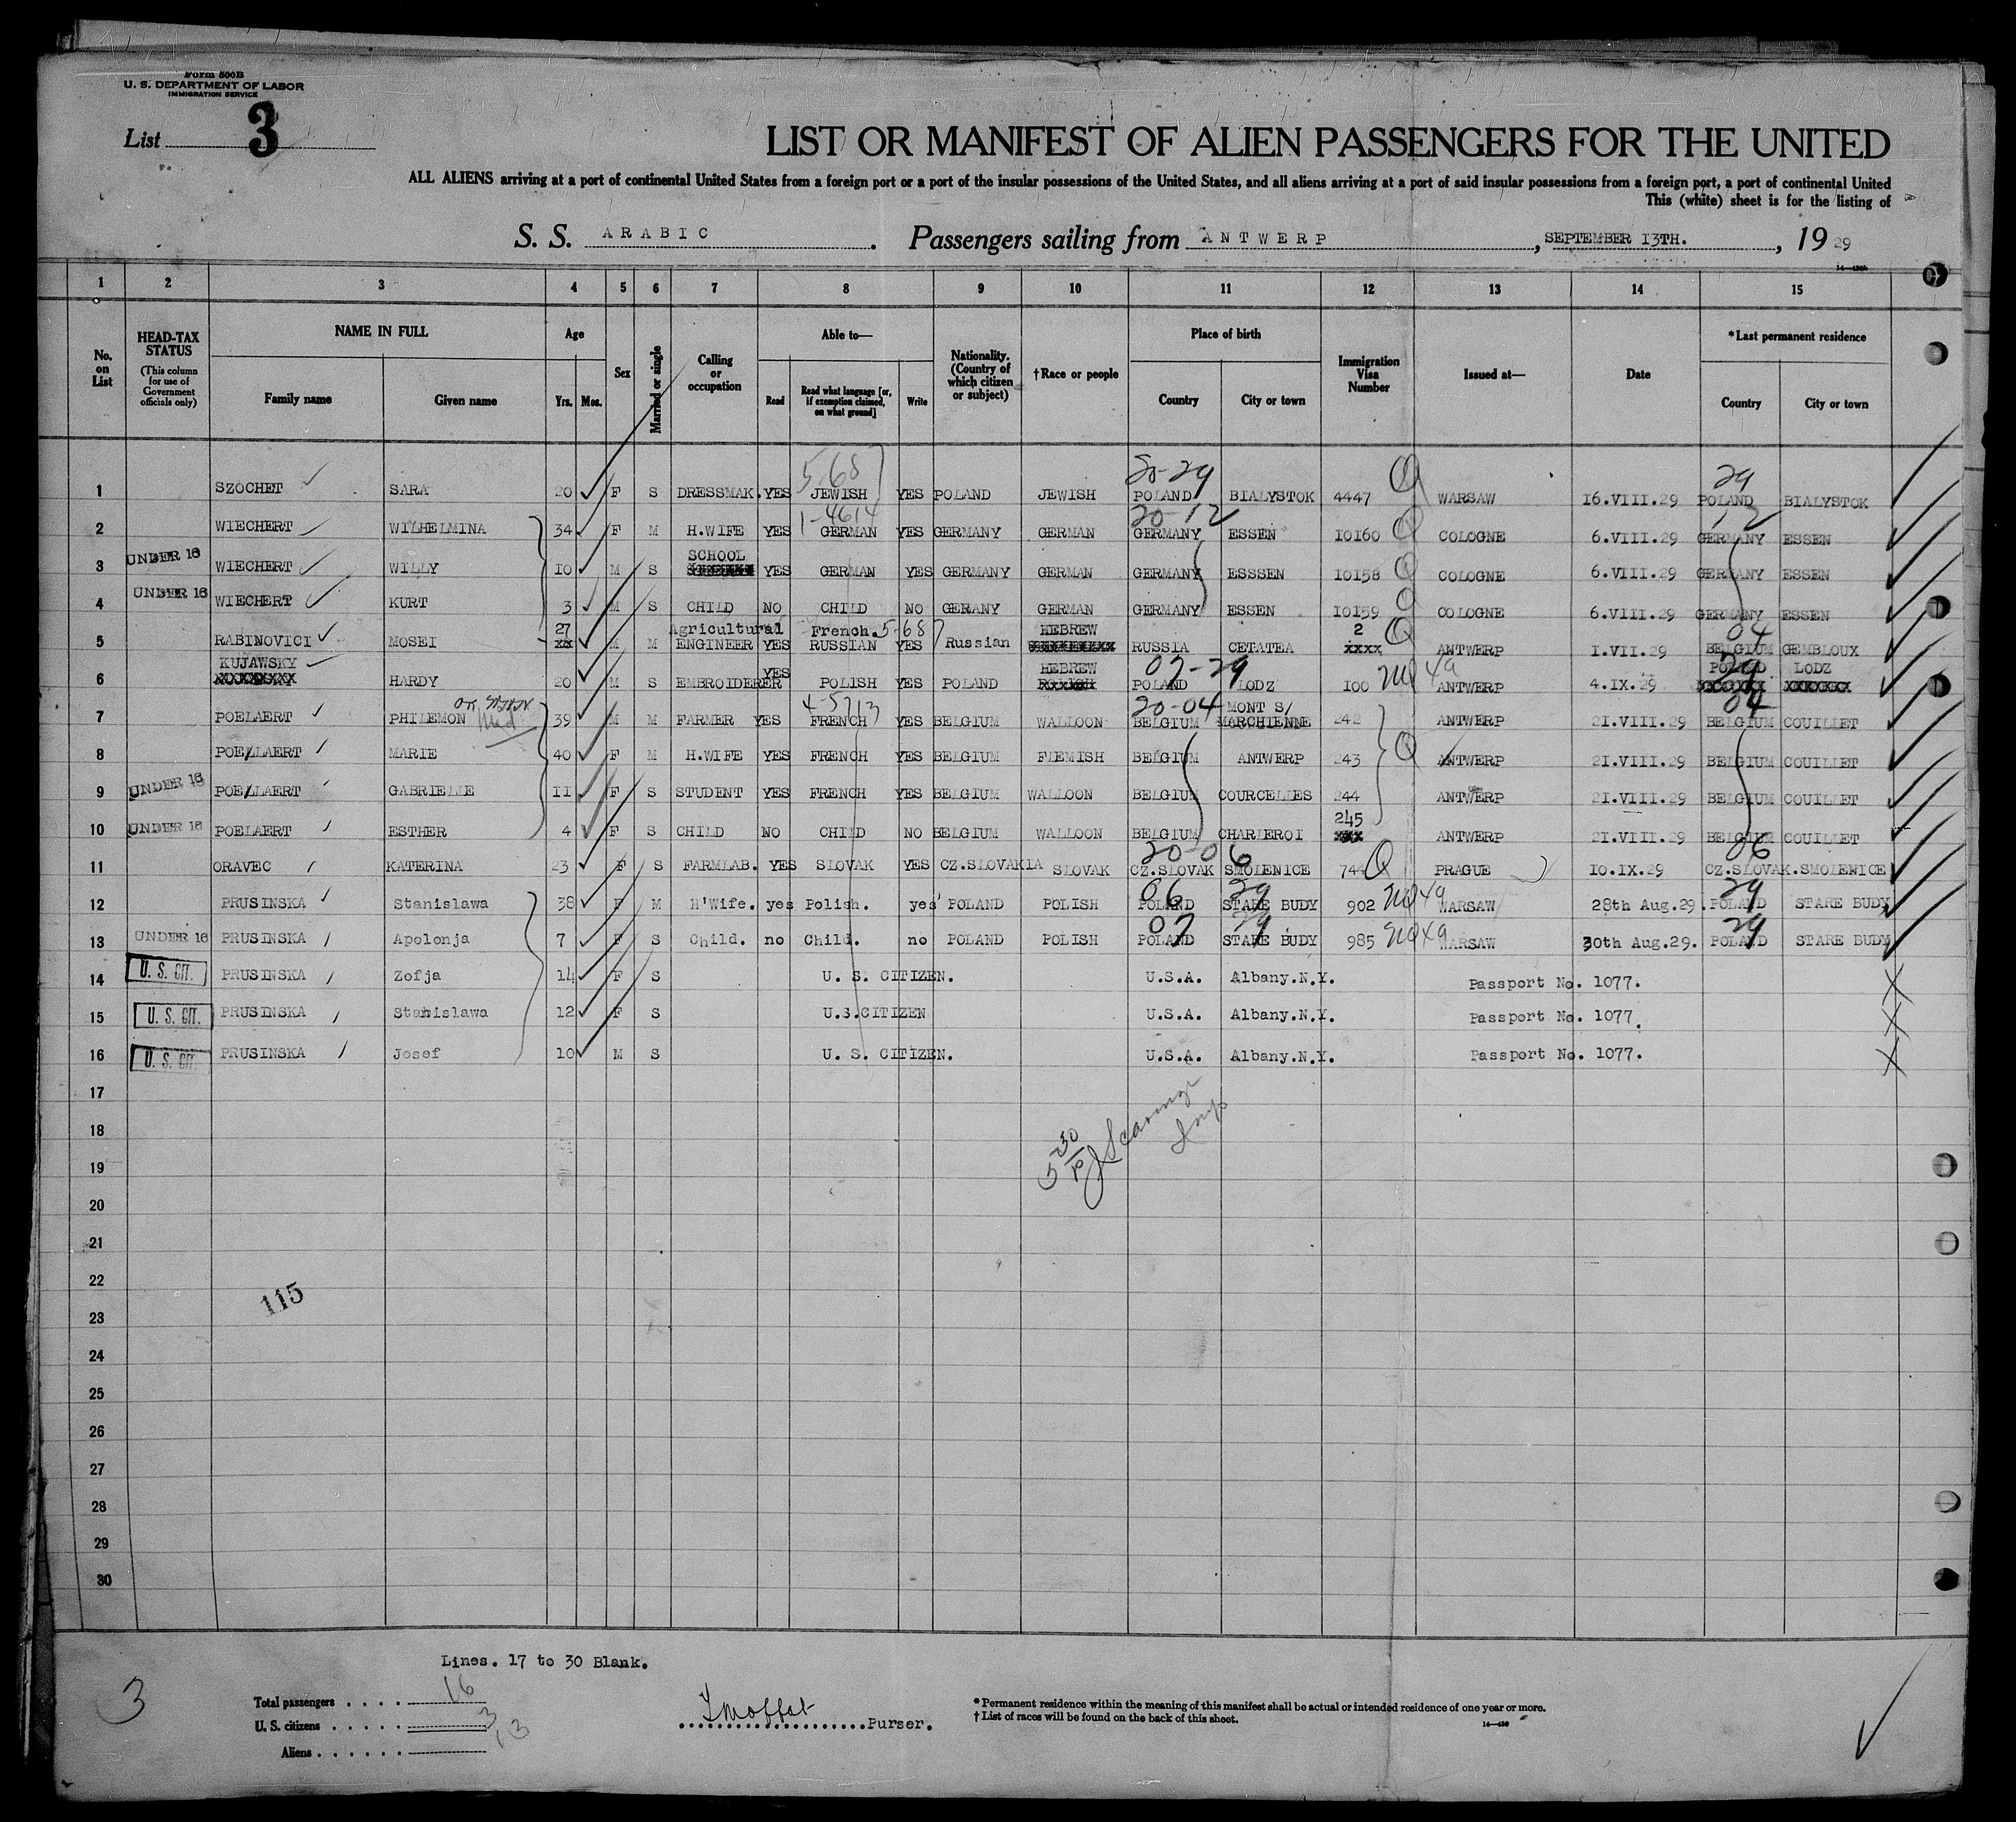 Form 500B
U. S. DEPARTMENT OF LABOR
IMMIGRATION SERVICE
List 3
LIST OR MANIFEST OF ALIEN PASSENGERS FOR THE UNITED
ALL ALIENS arriving at a port of continental United States from a foreign port or a port of the insular possessions of the United States, and all aliens arriving at a port of said insular possessions from a foreign port, a port of continental United
This (white) sheet is for the listing of
S. S. ARABIC. Passengers sailing from ANTWERP, SEPTEMBER 13TH., 1929
1 2 3 4 5 6 7 8 9 10 11 12 13 14 15
No. on List
HEAD-TAX STATUS
(This column for use of Government officials only)
NAME IN FULL
Family name Given name
Age
Yrs. Mos.
Sex
Married or single
Calling or occupation
Able to—
Read Read what language [or, if exemption claimed, on what ground] Write
Nationality. (Country of which citizen or subject)
†Race or people
Place of birth
Country City or town
Immigration Visa Number
Issued at—
Date
*Last permanent residence
Country City or town
5-68 20-29 29
1 SZOCHET SARA 20 F S DRESSMAK. YES JEWISH YES POLAND JEWISH POLAND BIALYSTOK 4447 WARSAW 16.VIII.29 POLAND BIALYSTOK
1-4614 20-12 12
2 WIECHERT WILHELMINA 34 F M H.WIFE YES GERMAN YES GERMANY GERMAN GERMANY ESSEN 10160 COLOGNE 6.VIII.29 GERMANY ESSEN
SCHOOL
3 UNDER 16 WIECHERT WILLY 10 M S YES GERMAN YES GERMANY GERMAN GERMANY ESSSEN 10158 COLOGNE 6.VIII.29 GERMANY ESSEN
4 UNDER 16 WIECHERT KURT 3 M S CHILD NO CHILD NO GERANY GERMAN GERMANY ESSEN 10159 COLOGNE 6.VIII.29 GERMANY ESSEN
27 Agricultural French. 5-68 HEBREW 2 04
5 RABINOVICI MOSEI xx M M ENGINEER YES RUSSIAN YES Russian RUSSIA CETATEA xxxx ANTWERP I.VII.29 BELGIUM GEMBLOUX
KUJAWSKY YES HEBREW 07-29 POLAND LODZ
6 XXXXXXXX HARDY 20 M S EMBROIDERER POLISH YES POLAND POLAND LODZ 100 ANTWERP 4.IX.29 XXXXXXX
4-5713 20-04 MONT S/ 04
7 POELAERT PHILEMON 39 M M FARMER YES FRENCH YES BELGIUM WALLOON BELGIUM MARCHIENNE 242 ANTWERP 21.VIII.29 BELGIUM COUILLET
8 POELLAERT MARIE 40 F M H.WIFE YES FRENCH YES BELGIUM FLEMISH BELGIUM ANTWERP 243 ANTWERP 21.VIII.29 BELGIUM COUILLET
9 UNDER 16 POELLAERT GABRIELLE 11 F S STUDENT YES FRENCH YES BELGIUM WALLOON BELGIUM COURCELLES 244 ANTWERP 21.VIII.29 BELGIUM COUILLET
245
10 UNDER 16 POELAERT ESTHER 4 F S CHILD NO CHILD NO BELGIUM WALLOON BELGIUM CHARLEROI xxx ANTWERP 21.VIII.29 BELGIUM COUILLET
20-06 06
11 ORAVEC KATERINA 23 F S FARMLAB. YES SLOVAK YES CZ.SLOVAKIA SLOVAK CZ.SLOVAK SMOLENICE 744 PRAGUE 10.IX.29 CZ.SLOVAK.SMOLENICE
06 29 29
12 PRUSINSKA Stanislawa 38 F M H'Wife. yes Polish. yes POLAND POLISH POLAND STARE BUDY 902 WARSAW 28th Aug.29. POLAND STARE BUDY
07 29 29
13 UNDER 16 PRUSINSKA Apolonja 7 F S Child. no Child. no POLAND POLISH POLAND STARE BUDY 985 WARSAW 30th Aug.29. POLAND STARE BUDY
14 U. S. CIT. PRUSINSKA Zofja 14 F S U. S. CITIZEN. U.S.A. Albany.N.Y. Passport No. 1077.
15 U. S. CIT. PRUSINSKA Stanislawa 12 F S U.S.CITIZEN U.S.A. Albany.N.Y. Passport No. 1077.
16 U. S. CIT. PRUSINSKA Josef 10 M S U. S. CITIZEN. U.S.A. Albany.N.Y. Passport No. 1077.
17
18
19
20
21
22
115
23
24
25
26
27
28
29
30
Lines. 17 to 30 Blank.
3
Total passengers . . . . . 16
U. S. citizens . . . . . . 3
Aliens . . . . . . 13
Purser.
* Permanent residence within the meaning of this manifest shall be actual or intended residence of one year or more.
† List of races will be found on the back of this sheet.